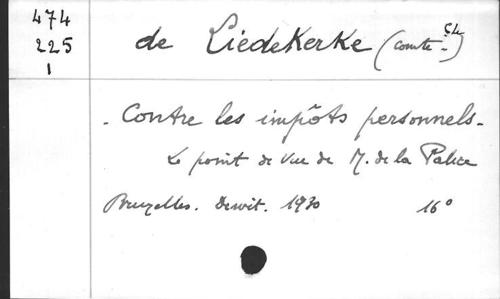 474
225
1
de Liedekerke (Comte Ch.)
- Contre les impôts personnels -
Le point de vue de M. de la Palice
Bruxelles. Dewit. 1930 16°